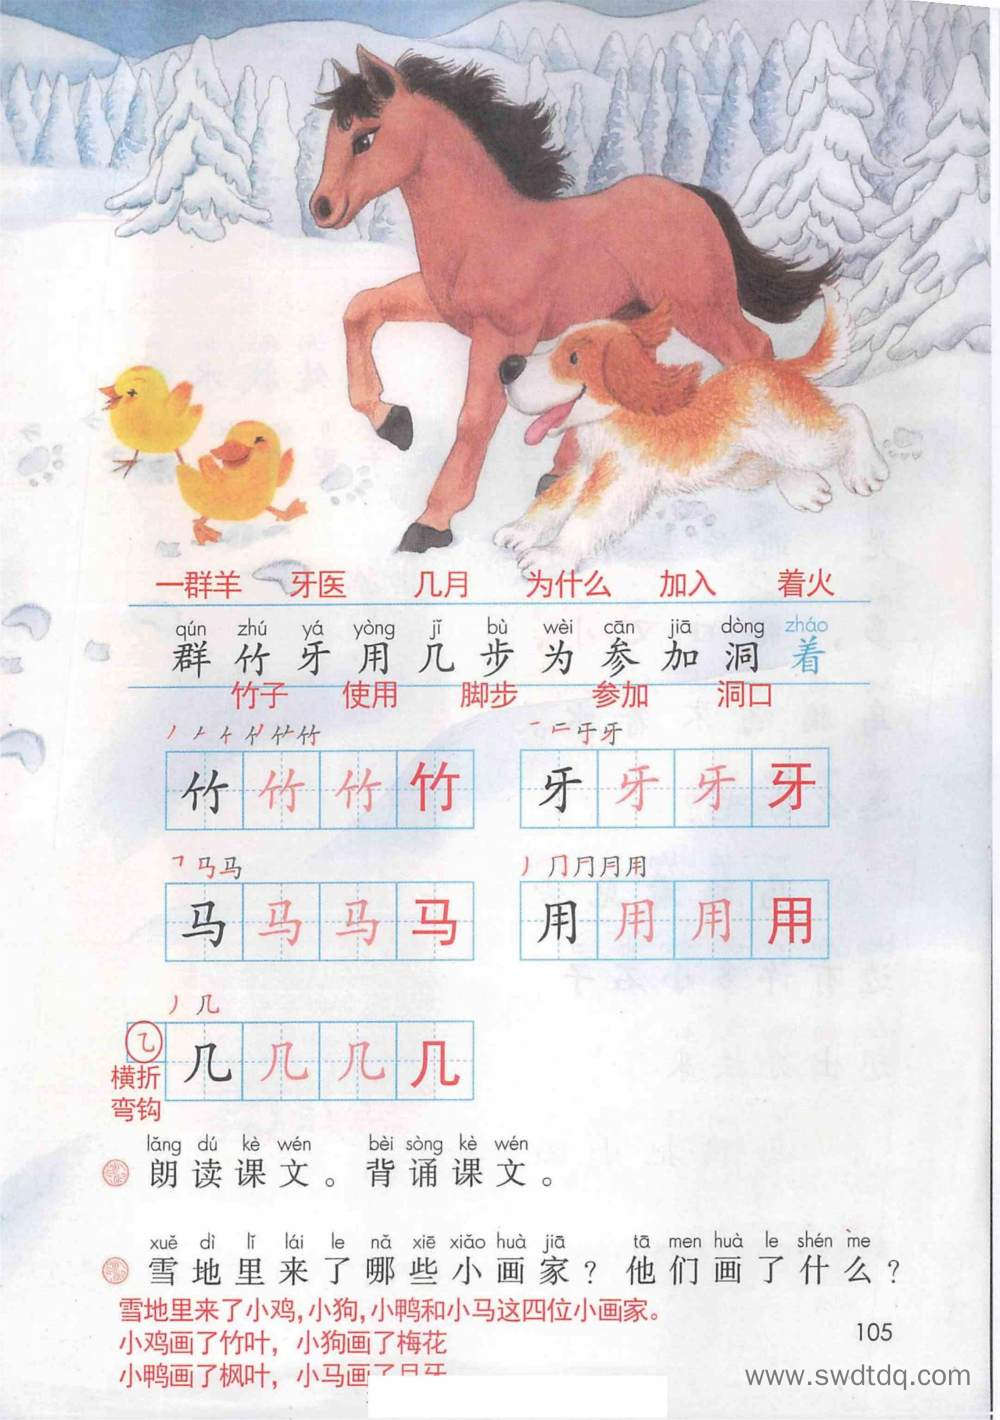 一群羊 牙医 几月 为什么 加入 着火
qún zhú yá yòng jǐ bù wèi cān jiā dòng zháo
群 竹 牙 用 几 步 为 参 加 洞 着
竹子 使用 脚步 参加 洞口
竹 竹 竹 竹 牙 牙 牙 牙
马 马 马 马 用 用 用 用
几 几 几 几
横折
弯钩
lǎng dú kè wén bèi sòng kè wén
朗读课文。背诵课文。
xuě dì lǐ lái le nǎ xiē xiǎo huà jiā tā men huà le shén me
雪地里来了哪些小画家？他们画了什么？
雪地里来了小鸡,小狗,小鸭和小马这四位小画家。
小鸡画了竹叶，小狗画了梅花
小鸭画了枫叶，小马画了月牙
105
www.swdtdq.com